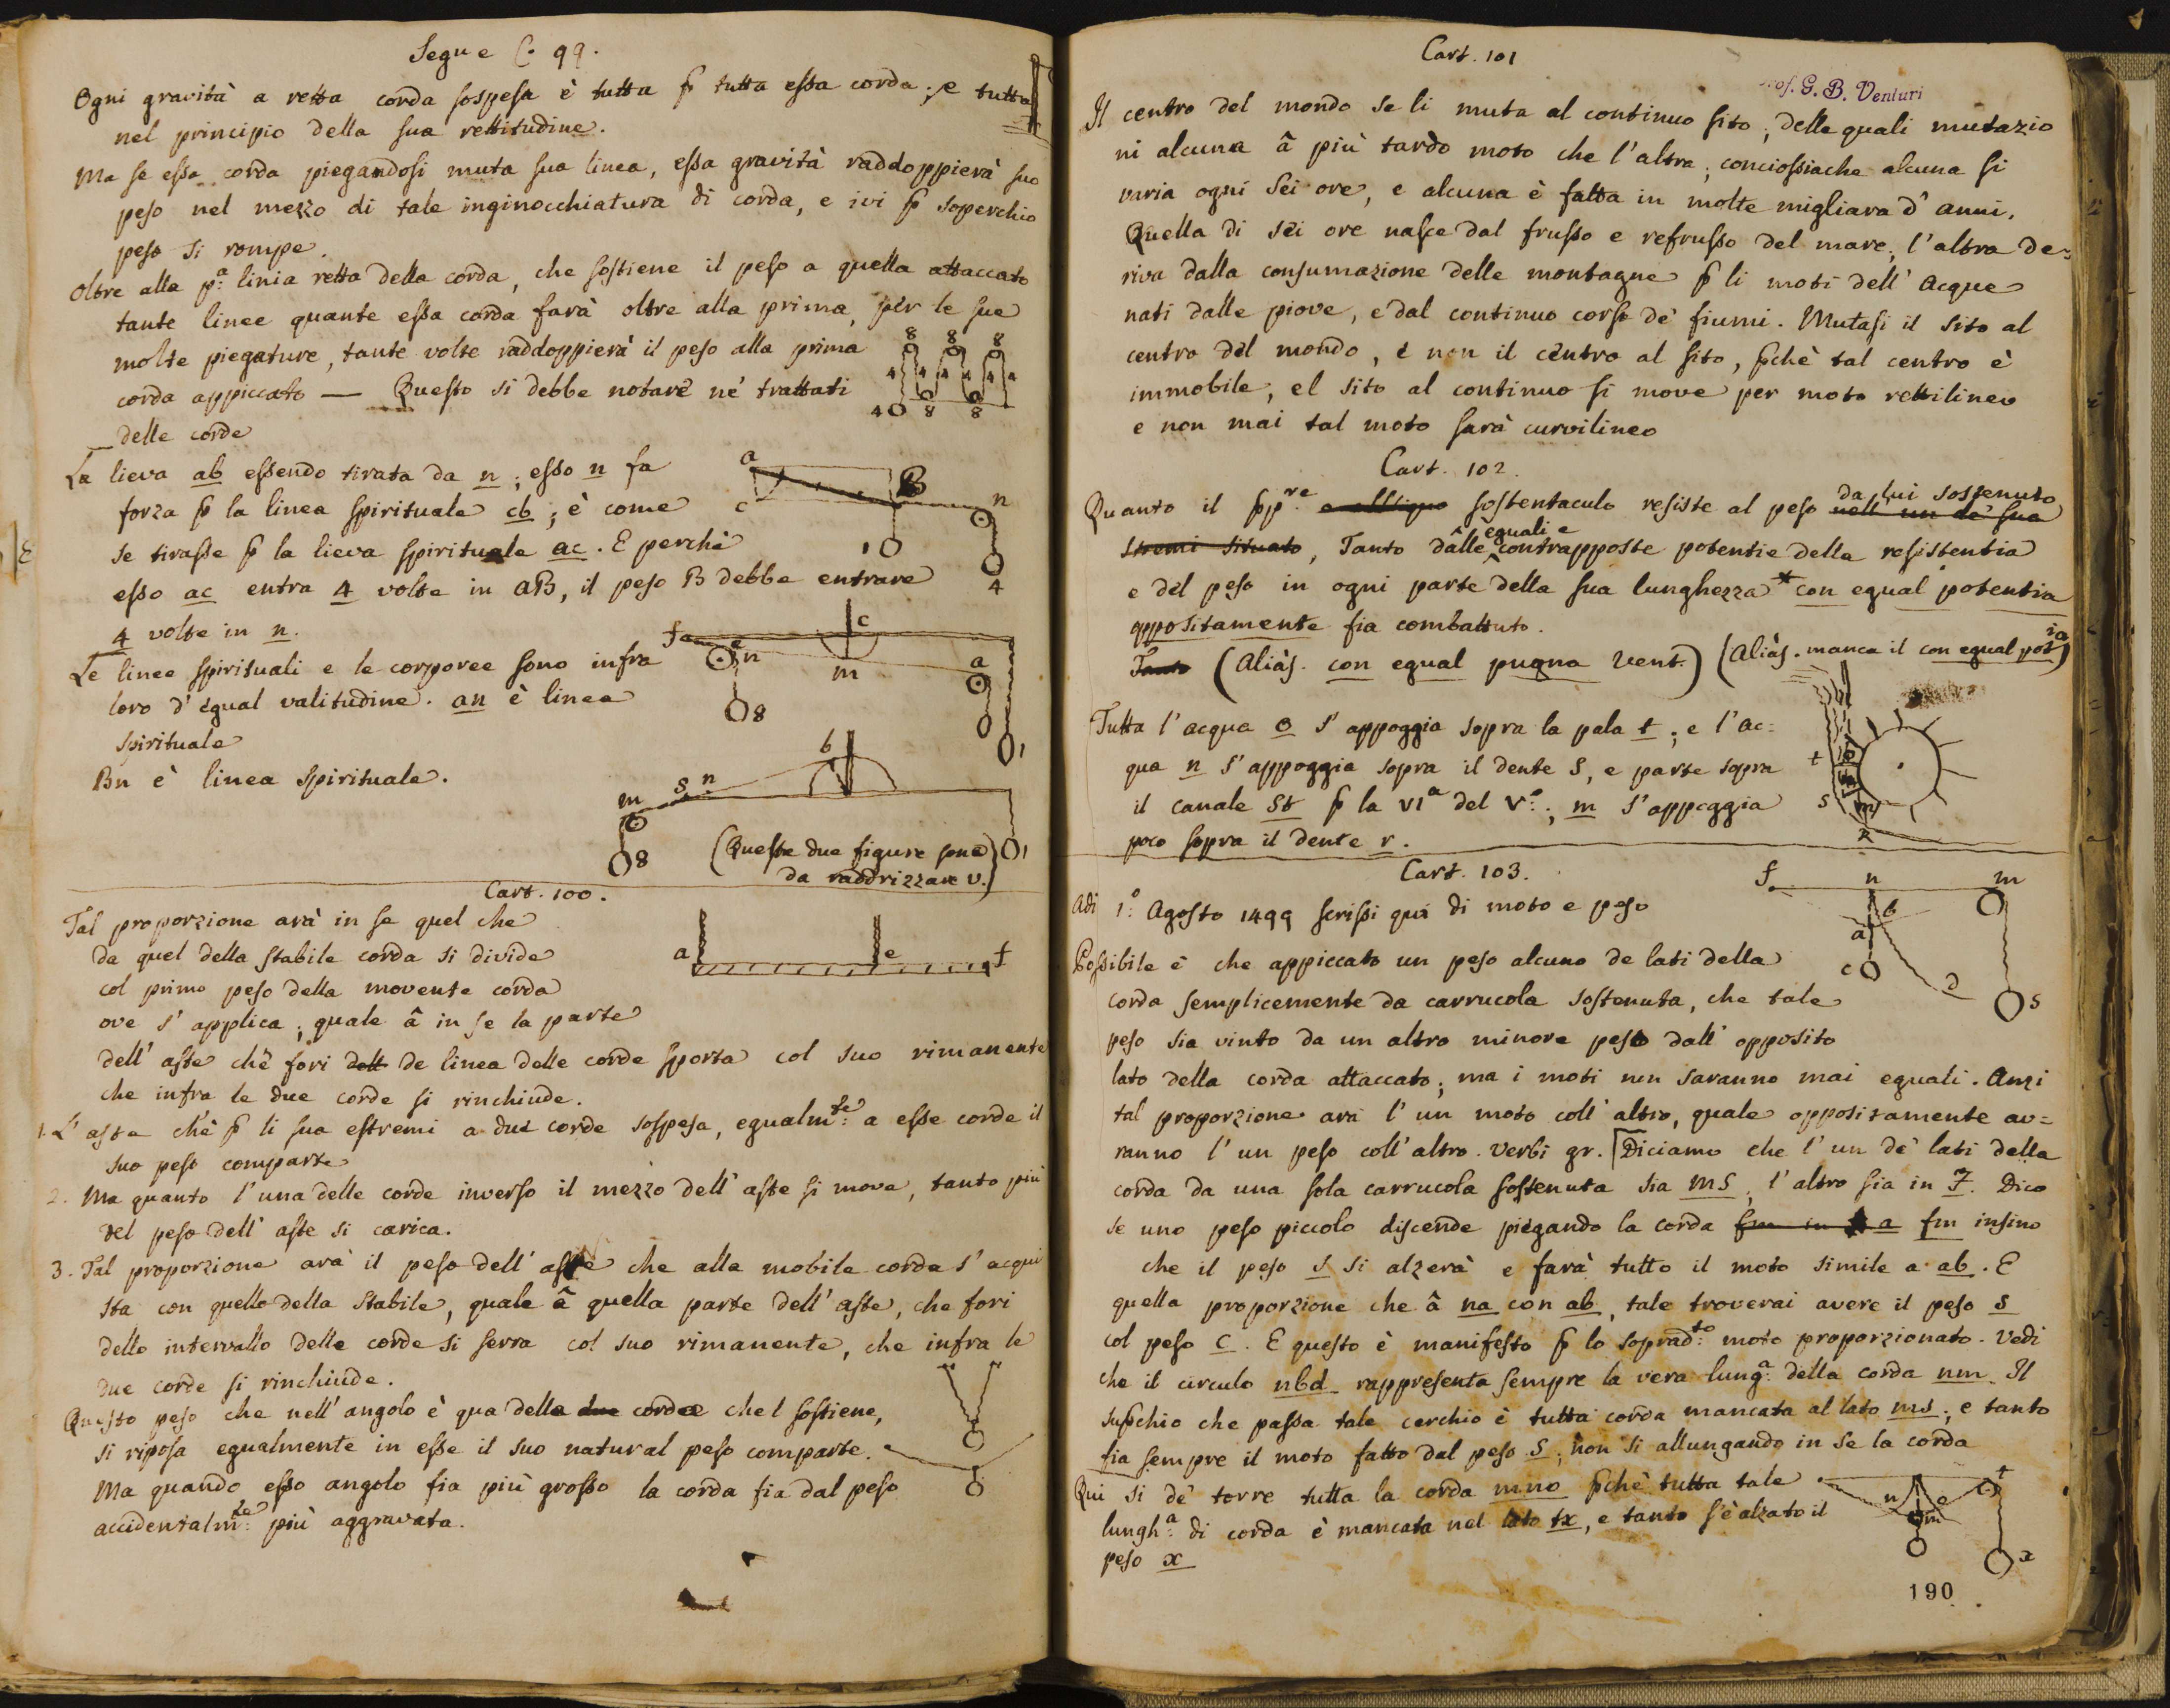 Segue C. 99.
Ogni gravità a retta corda sospesa è tutta p tutta essa corda; e tutta
nel principio della sua rettitudine.
Ma se essa corda piegandosi muta sua linea, essa gravità raddoppierà suo
peso nel mezzo di tale inginocchiatura di corda, e ivi p soperchio
peso si rompe.
Oltre alla p.ª linia retta della corda, che sostiene il peso a quella attaccato
tante linee quante essa corda farà oltre alla prima, per le sue
molte piegature, tante volte raddoppierà il peso alla prima
corda appiccato — Questo si debbe notare ne' trattati
delle corde
8 8 8
4 4 4 4 4 4
4 8 8
La lieva ab essendo tirata da n; esso n fa
forza p la linea spirituale cb; è come
se tirasse p la lieva spirituale ac. E perchè
esso ac entra 4 volte in aB, il peso B debbe entrare
4 volte in n.
a B n
c
1 4
Le linee spirituali e le corporee sono infra
loro d'egual valitudine. an è linea
spirituale
Bn è linea spirituale.
f c
n m a
8 1
b
m s n
8 1
(Queste due figure sono
da raddrizzare v.)
Cart. 100.
Tal proporzione arà in se quel che
da quel della stabile corda si divide
col primo peso della movente corda
ove s'applica; quale â in se la parte
dell'aste chè fori dell de linea delle corde sporta col suo rimanente
che infra le due corde si rinchiude.
a e f
1. L'asta chè p li sua estremi a due corde sospesa, egualm.te a esse corde il
suo peso comparte
2. Ma quanto l'una delle corde inverso il mezzo dell'aste si move, tanto più
del peso dell'aste si carica.
3. Tal proporzione arà il peso dell'aste che alla mobile corda s'acqui
sta con quello della stabile, quale â quella parte dell'aste, che fori
dello intervallo delle corde si serra col suo rimanente, che infra le
due corde si rinchiude.
Questo peso che nell'angolo è qua delle due corde chel sostiene,
si riposa egualmente in esse il suo natural peso comparte.
Ma quando esso angolo fia più grosso la corda fia dal peso
accidentalm.te più aggravata.
Cart. 101
Prof. G. B. Venturi
Il centro del mondo se li muta al continuo sito; delle quali mutazio
ni alcuna â più tardo moto che l'altra; conciossiache alcuna si
varia ogni sei ore, e alcuna è fatta in molte migliara d'anni.
Quella di sei ore nasce dal frusso e refrusso del mare; l'altra de=
riva dalla consumazione delle montagne p li moti dell'acque
nati dalle piove, e dal continuo corso de' fiumi. Mutasi il sito al
centro del mondo, e non il centro al sito, pchè tal centro è
immobile, el sito al continuo si move per moto rettilineo
e non mai tal moto sarà curvilineo
Cart. 102.
Quanto il pp.re e obliquo sostentaculo resiste al peso nell'un de' sua da lui sostenuto
stremi situato, Tanto dalle eguali e contrapposte potentie della resistentia
e del peso in ogni parte della sua lunghezza * con egual potentia
oppositamente fia combattuto.
Tanto (Aliàs. con egual pugna vent.) (Aliàs. manca il con egual pot.ia)
Tutta l'acqua o s'appoggia sopra la pala t; e l'ac=
qua n s'appoggia sopra il dente s, e parte sopra
il canale st p la via del v.º; m s'appoggia
poco sopra il dente r.
t o
s n
m
r
Cart. 103.
Adì 1.º Agosto 1499 scrissi quì di moto e peso
Possibile è che appiccato un peso alcuno de lati della
corda semplicemente da carrucola sostenuta, che tale
peso sia vinto da un altro minore peso dall'opposito
lato della corda attaccato; ma i moti non saranno mai eguali. Anzi
tal proporzione arà l'un moto coll'altro, quale oppositamente av=
ranno l'un peso coll'altro. Verbi gr. Diciamo che l'un de' lati della
corda da una sola carrucola sostenuta sia ms, l'altro sia in f. Dico
se uno peso piccolo discende piegando la corda fm in a fm insino
che il peso s si alzerà e farà tutto il moto simile a ab. E
quella proporzione che â na con ab, tale troverai avere il peso s
col peso c. E questo è manifesto p lo soprad.to moto proporzionato. Vedi
che il circulo nbd rappresenta sempre la vera lung.ª della corda nm. Il
supchio che passa tale cerchio è tutta corda mancata al lato ms; e tanto
fia sempre il moto fatto dal peso s, non si allungando in se la corda
f n m
b
a
c d s
Qui si de' torre tutta la corda mno pchè tutta tale
lungh.ª di corda è mancata nel lato tx, e tanto s'è alzato il
peso x
t
n o
m
x
190